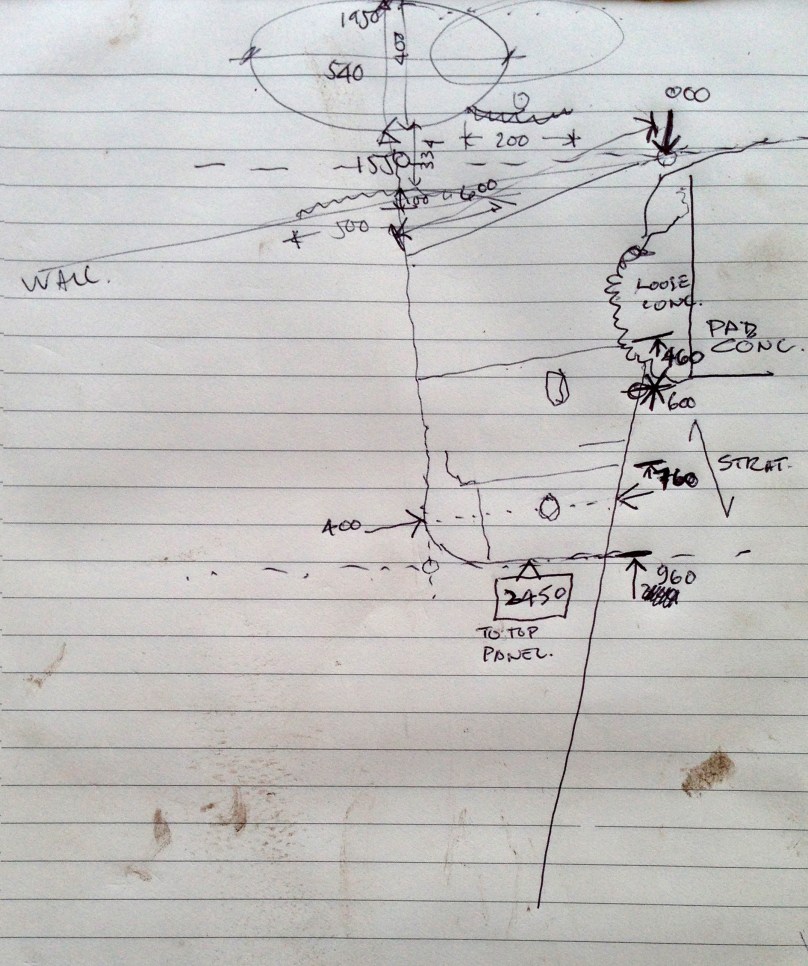 1950
400
540
000
200
334
1550
600
500
WALL.
LOOSE
CONC.
PAD
CONC.
460
600
STRAT.
760
400
960
2450
TO TOP
PANEL.